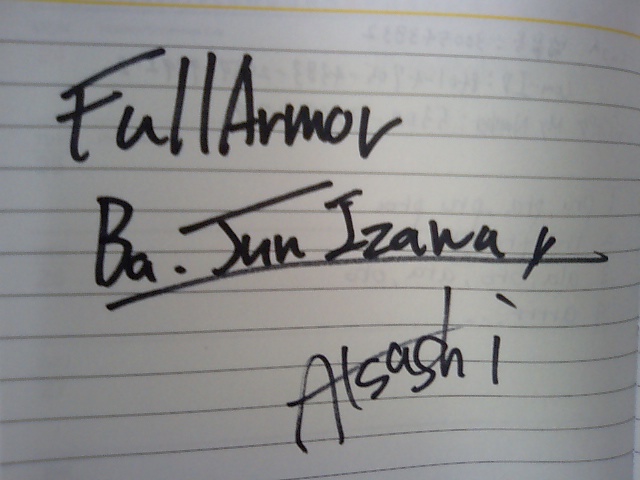 FullArmor
Ba. Jun Izawa
Atsashi